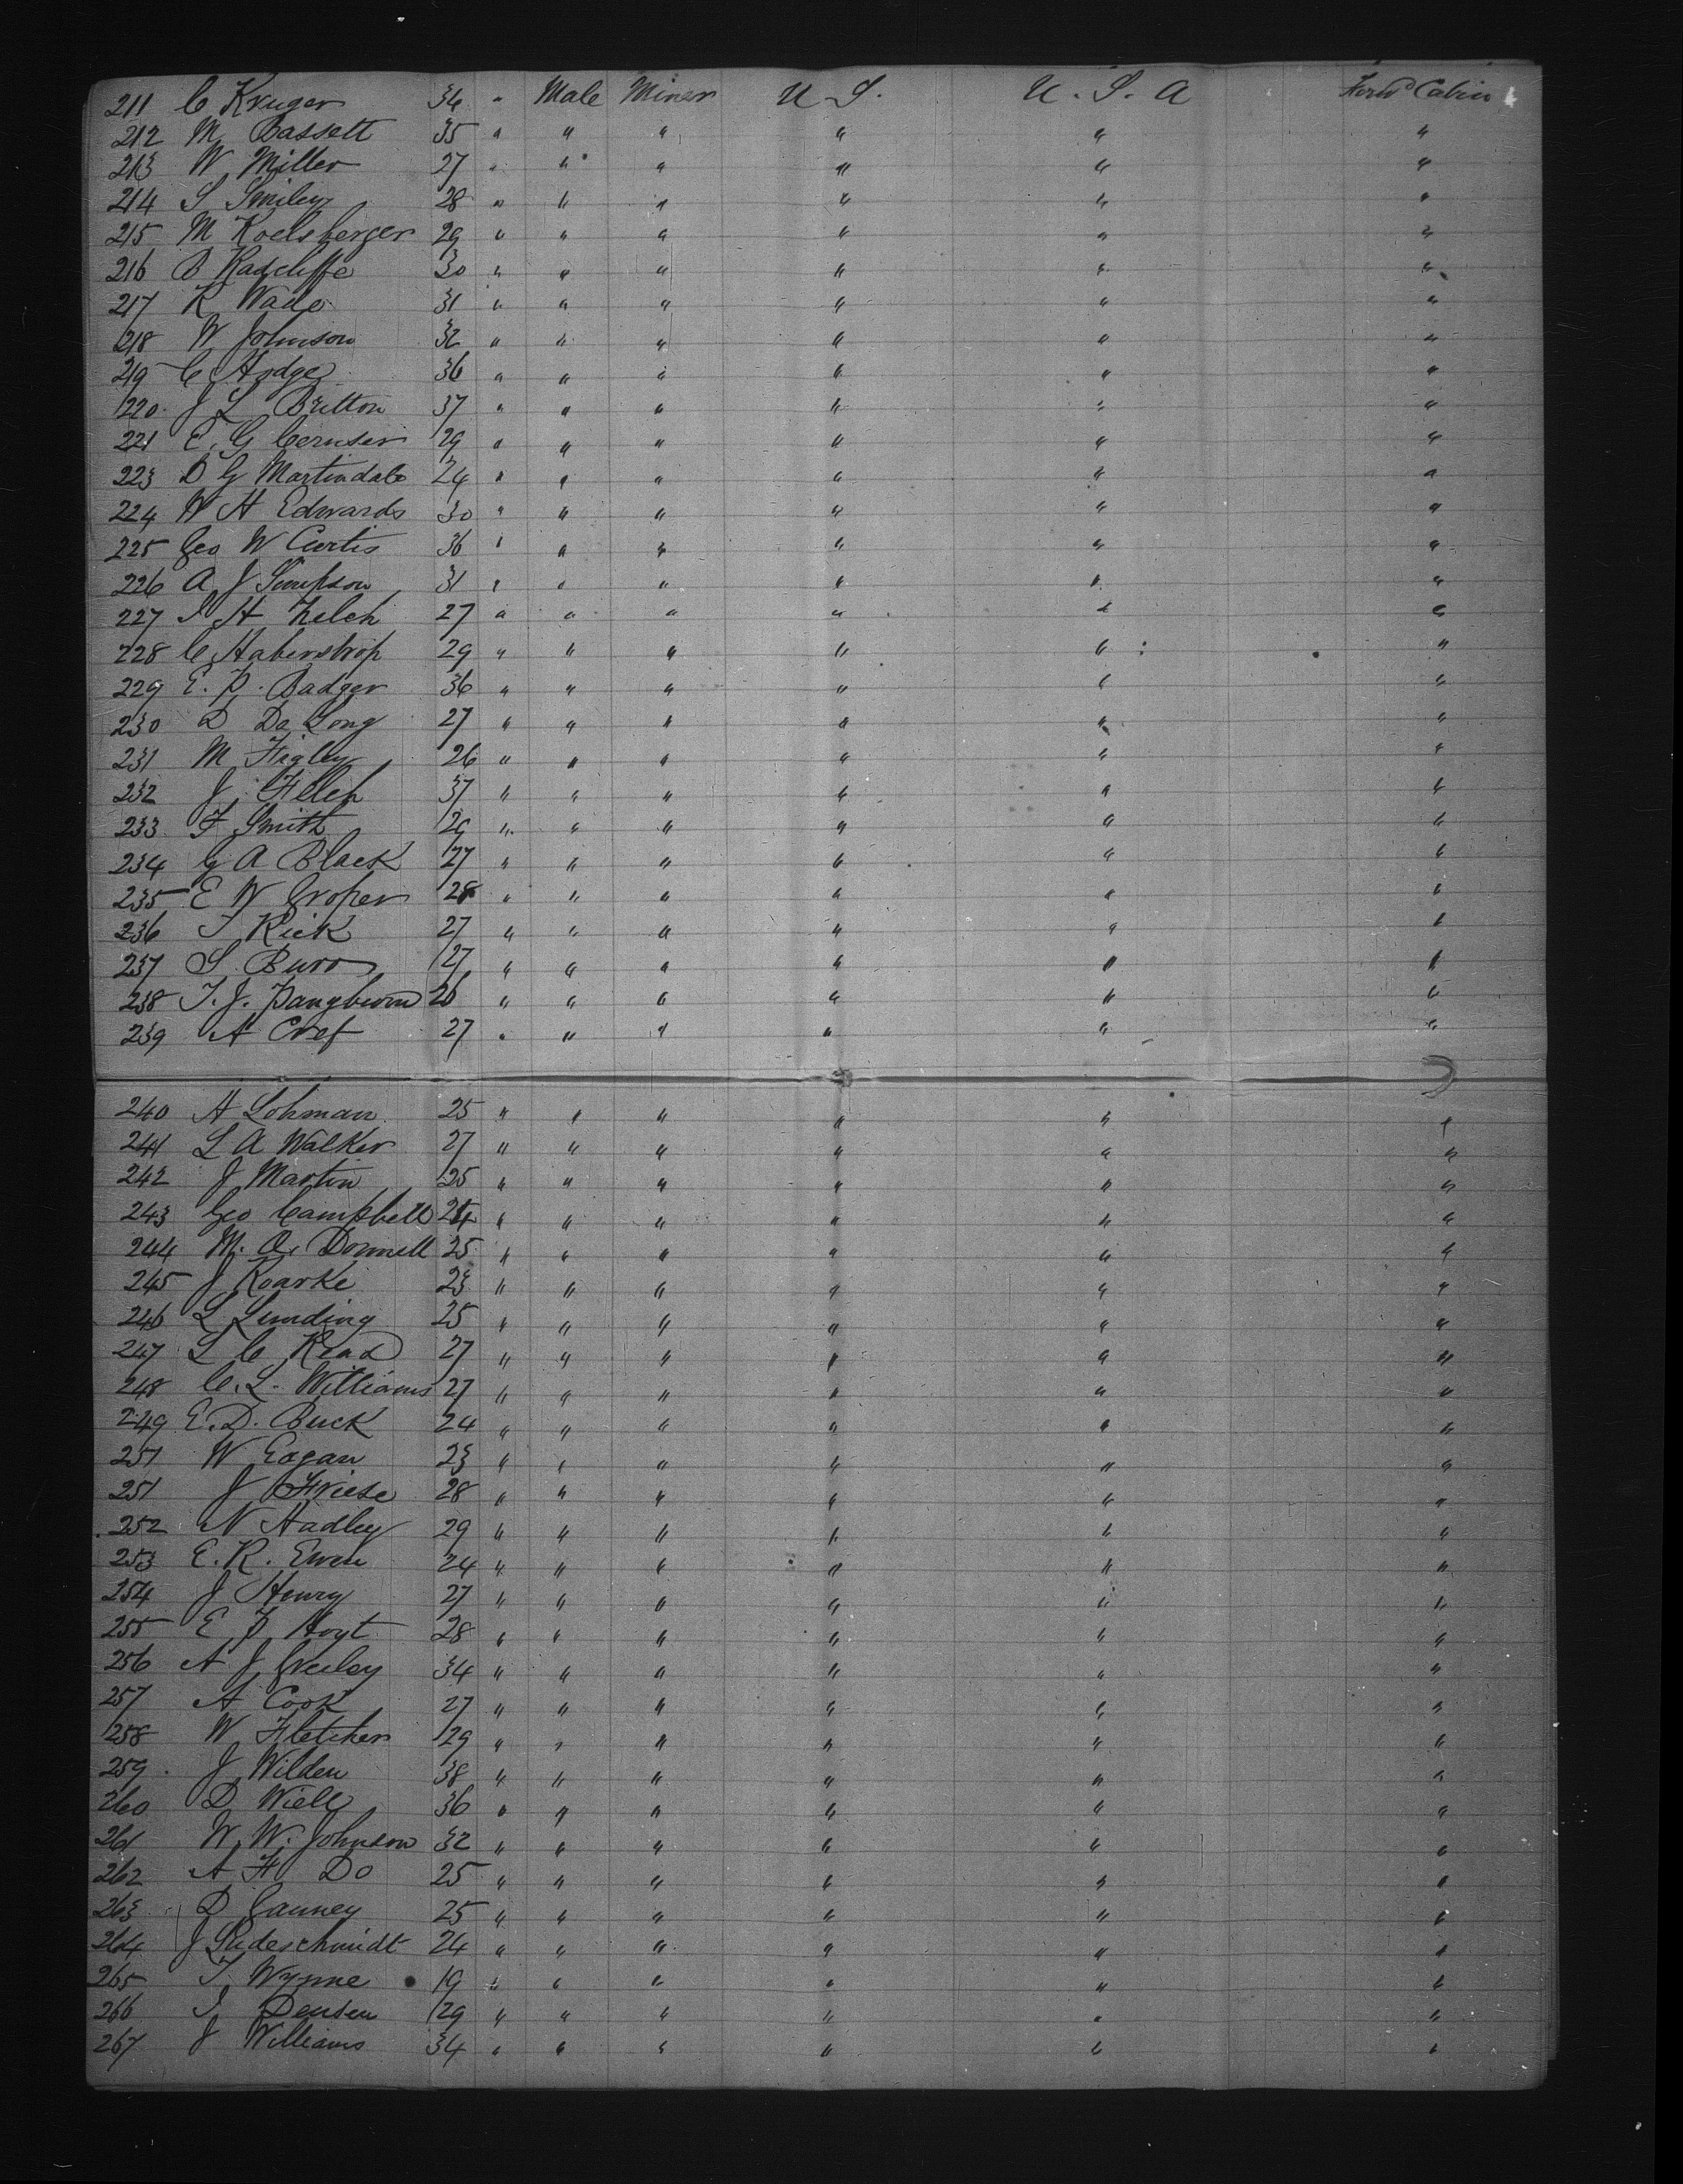 211 C Kruger 34 " Male Miner U S. U. S. A Forwd Cabin
212 M Bassett 35 " " " " " "
213 W Miller 27 " " " " " "
214 S Smiley 28 " " " " " "
215 M Koelsberger 29 " " " " " "
216 B Radcliffe 30 " " " " " "
217 R Wade 31 " " " " " "
218 W Johnson 32 " " " " " "
219 C Hodge 36 " " " " " "
220 J L Britton 37 " " " " " "
221 E. G 29 " " " " " "
223 D G Martindale 24 " " " " " "
224 W H Edwards 30 " " " " " "
225 Geo W Curtis 36 " " " " " "
226 A J Simpson 31 " " " " " "
227 I H Zelch 27 " " " " " "
228 C Haberstrop 29 " " " " " "
229 E. P. Badger 36 " " " " " "
230 D De Long 27 " " " " " "
231 M Higley 26 " " " " " "
232 J Filch 37 " " " " " "
233 F Smith 29 " " " " " "
234 G A Black 27 " " " " " "
235 E W Croper 28 " " " " " "
236 T Rick 27 " " " " " "
237 S. Burr 27 " " " " " "
238 T. J. Pangburn 26 " " " " " "
239 A 27 " " " " " "
240 A Lohman 25 " " " " " "
241 L A Walker 27 " " " " " "
242 J Martin 25 " " " " " "
243 Geo Campbell 24 " " " " " "
244 M. O. Donnell 25 " " " " " "
245 J Roarke 23 " " " " " "
246 L Lunding 25 " " " " " "
247 L C Read 27 " " " " " "
248 C. L. Williams 27 " " " " " "
249 E. D. Buck 24 " " " " " "
251 W Eagan 23 " " " " " "
251 J Friese 28 " " " " " "
252 N Hadley 29 " " " " " "
253 E. R. Ewen 24 " " " " " "
254 J Henry 27 " " " " " "
255 E P Hoyt 28 " " " " " "
256 A J Greeley 34 " " " " " "
257 A Cook 27 " " " " " "
258 W Fletcher 29 " " " " " "
259. J Wilden 38 " " " " " "
260 D Wiell 36 " " " " " "
261 W. W. Johnson 32 " " " " " "
262 A H Do 25 " " " " " "
263 D Ganney 25 " " " " " "
264 J Rideschmidt 24 " " " " " "
265 T Wynne 19 " " " " " "
266 I Densen 29 " " " " " "
267 J Williams 34 " " " " " "